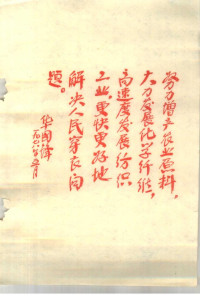 努力增产农业原料，
大力发展化学纤维，
高速度发展纺织
工业，更快更好地
解决人民穿衣问
题。
华国锋
一九七八年五月